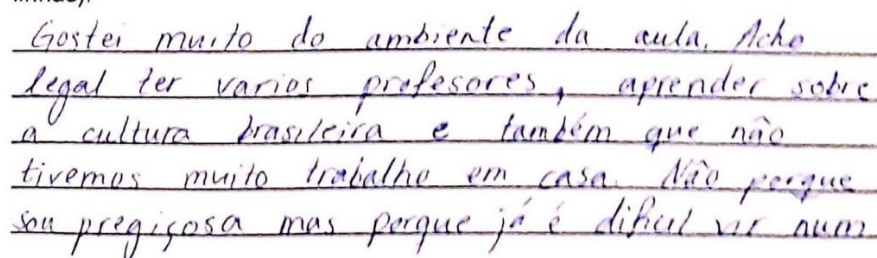 Gostei muito do ambiente da aula. Acho
legal ter varios profesores, aprender sobre
a cultura brasileira e também que não
tivemos muito trabalho em casa. Não porque
sou pregiçosa mas porque já é dificil vir num